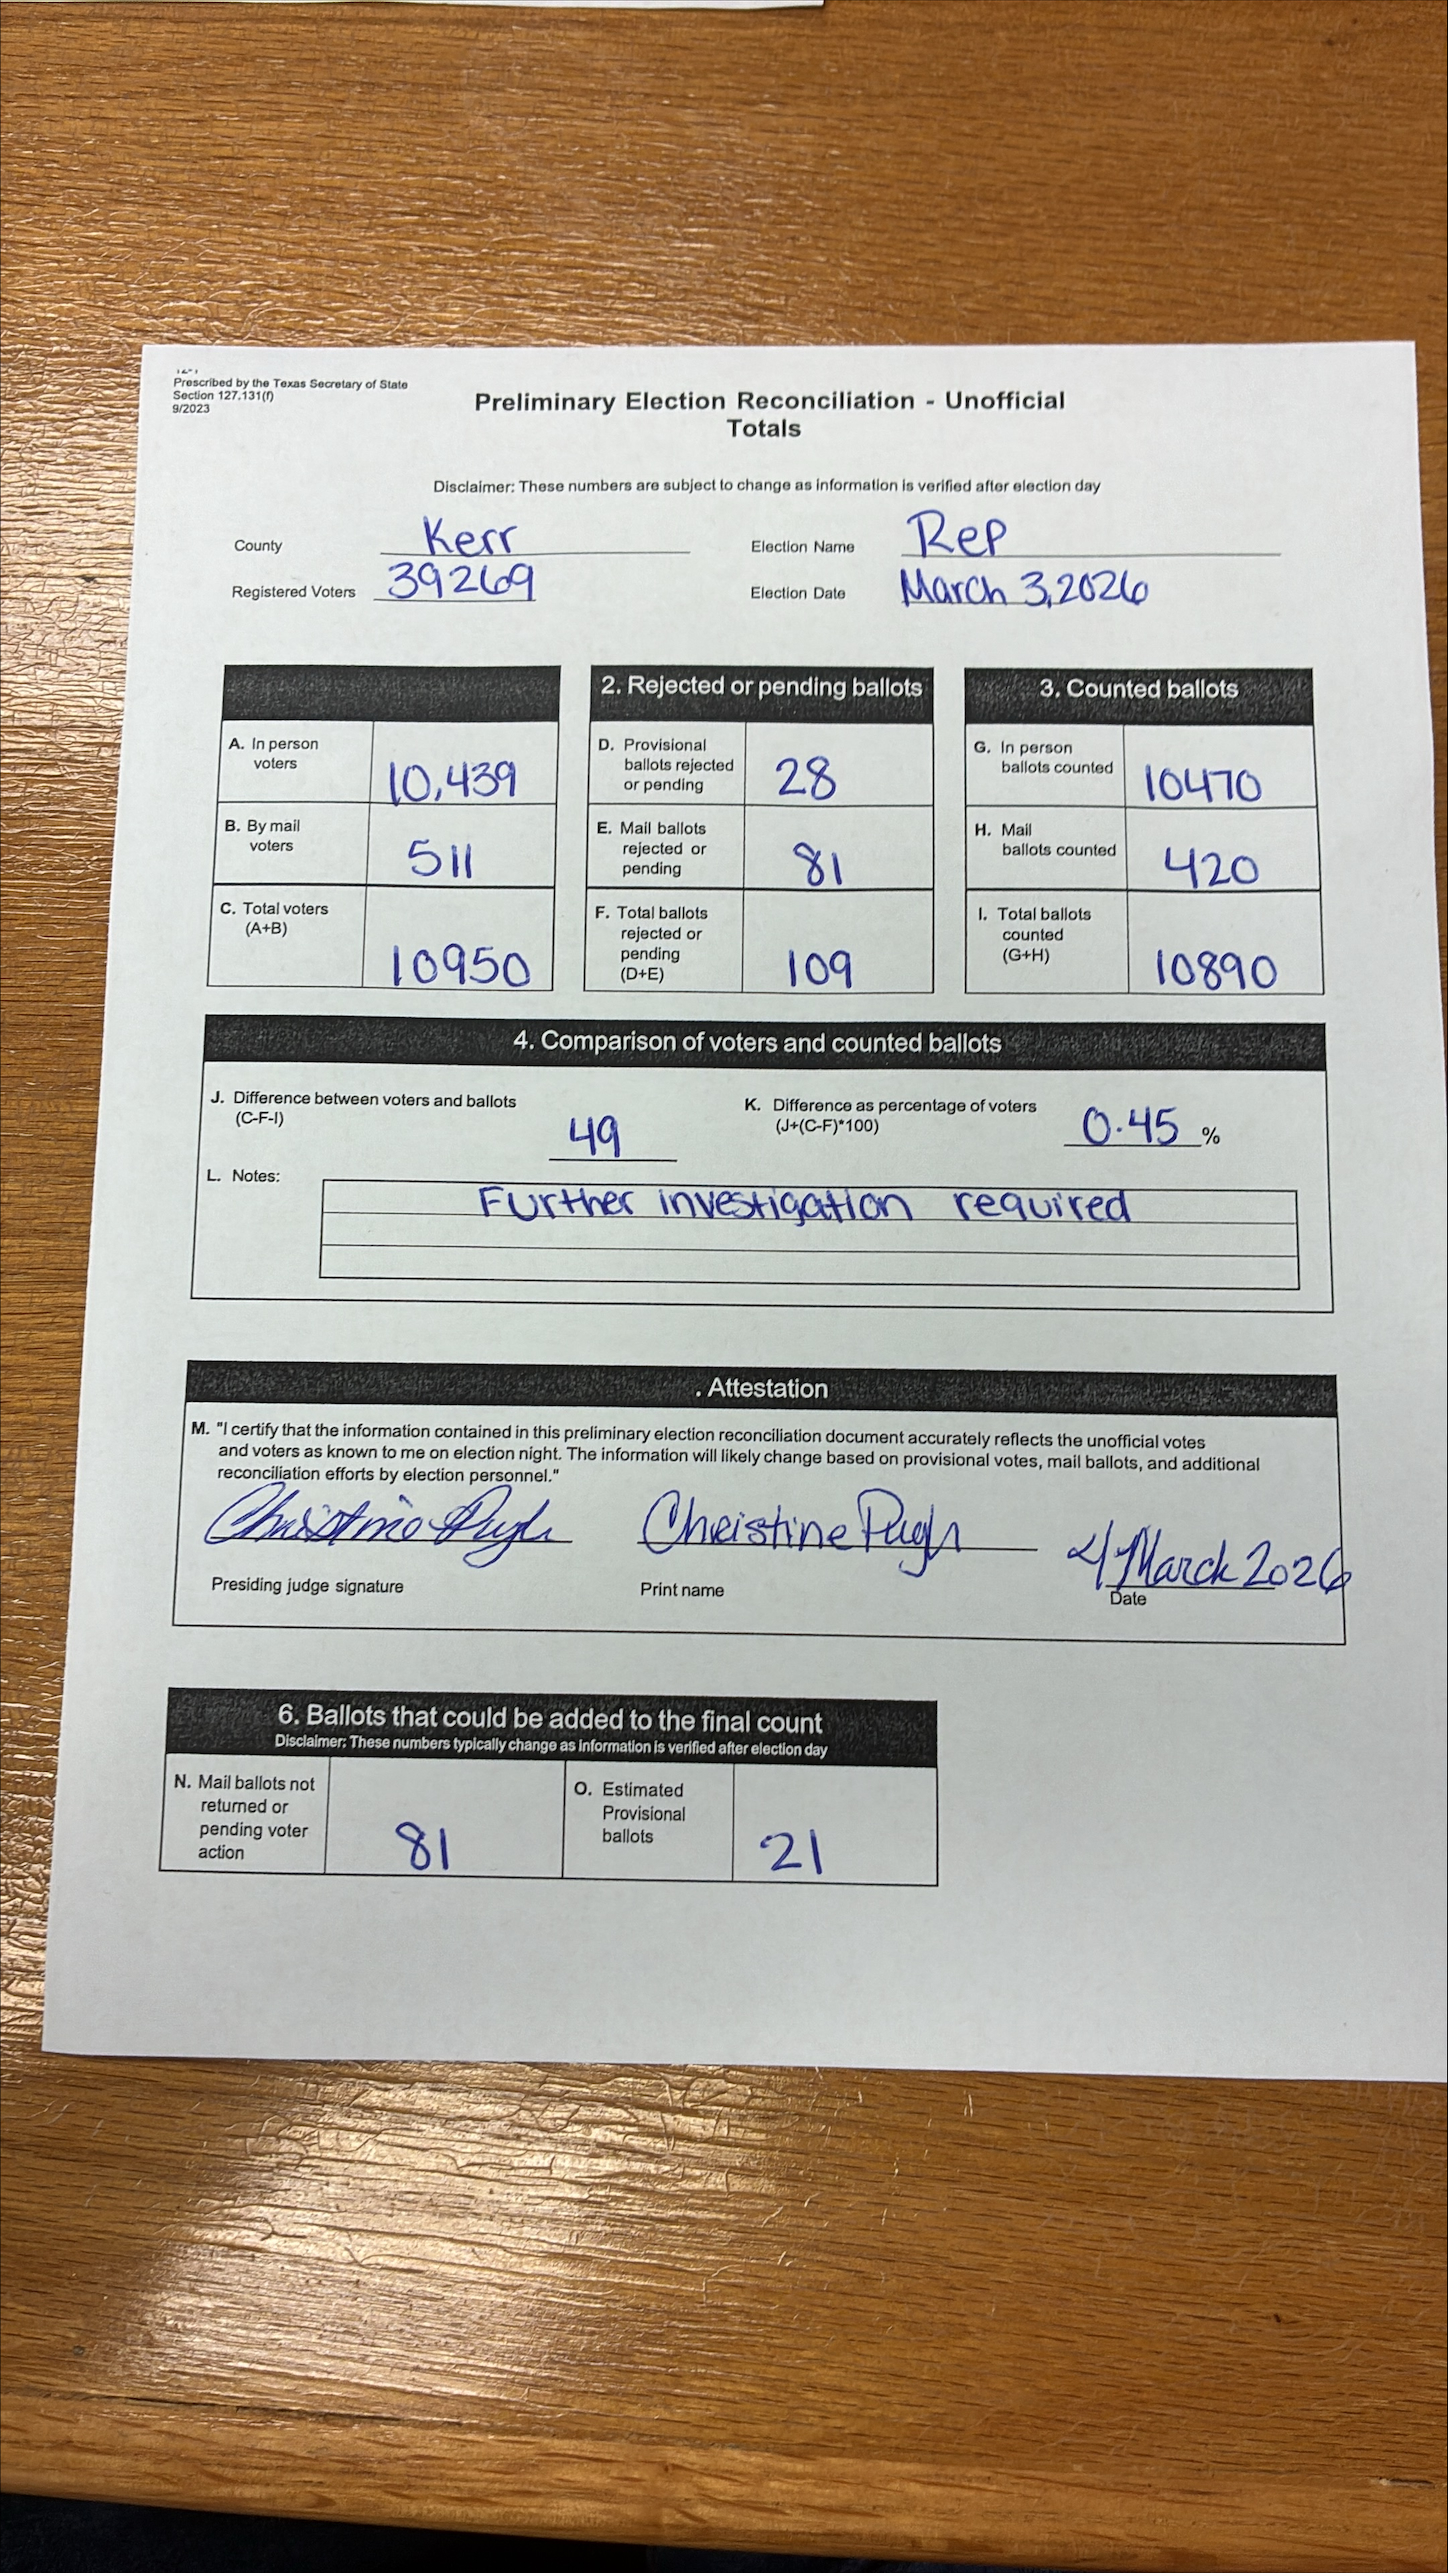 Prescribed by the Texas Secretary of State
Section 127.131(f)
9/2023
Preliminary Election Reconciliation - Unofficial
Totals
Disclaimer: These numbers are subject to change as information is verified after election day
County Kerr Election Name Rep
Registered Voters 39269 Election Date March 3, 2026
2. Rejected or pending ballots
3. Counted ballots
A. In person
voters
10,439
D. Provisional
ballots rejected
or pending
28
G. In person
ballots counted
10470
B. By mail
voters
511
E. Mail ballots
rejected or
pending
81
H. Mail
ballots counted
420
C. Total voters
(A+B)
10950
F. Total ballots
rejected or
pending
(D+E)
109
I. Total ballots
counted
(G+H)
10890
4. Comparison of voters and counted ballots
J. Difference between voters and ballots
(C-F-I)
49
K. Difference as percentage of voters
(J+(C-F)*100)
0.45 %
L. Notes:
Further investigation required
. Attestation
M. "I certify that the information contained in this preliminary election reconciliation document accurately reflects the unofficial votes
and voters as known to me on election night. The information will likely change based on provisional votes, mail ballots, and additional
reconciliation efforts by election personnel."
Christine Pugh Christine Pugh 4 March 2026
Presiding judge signature Print name Date
6. Ballots that could be added to the final count
Disclaimer: These numbers typically change as information is verified after election day
N. Mail ballots not
returned or
pending voter
action
81
O. Estimated
Provisional
ballots
21